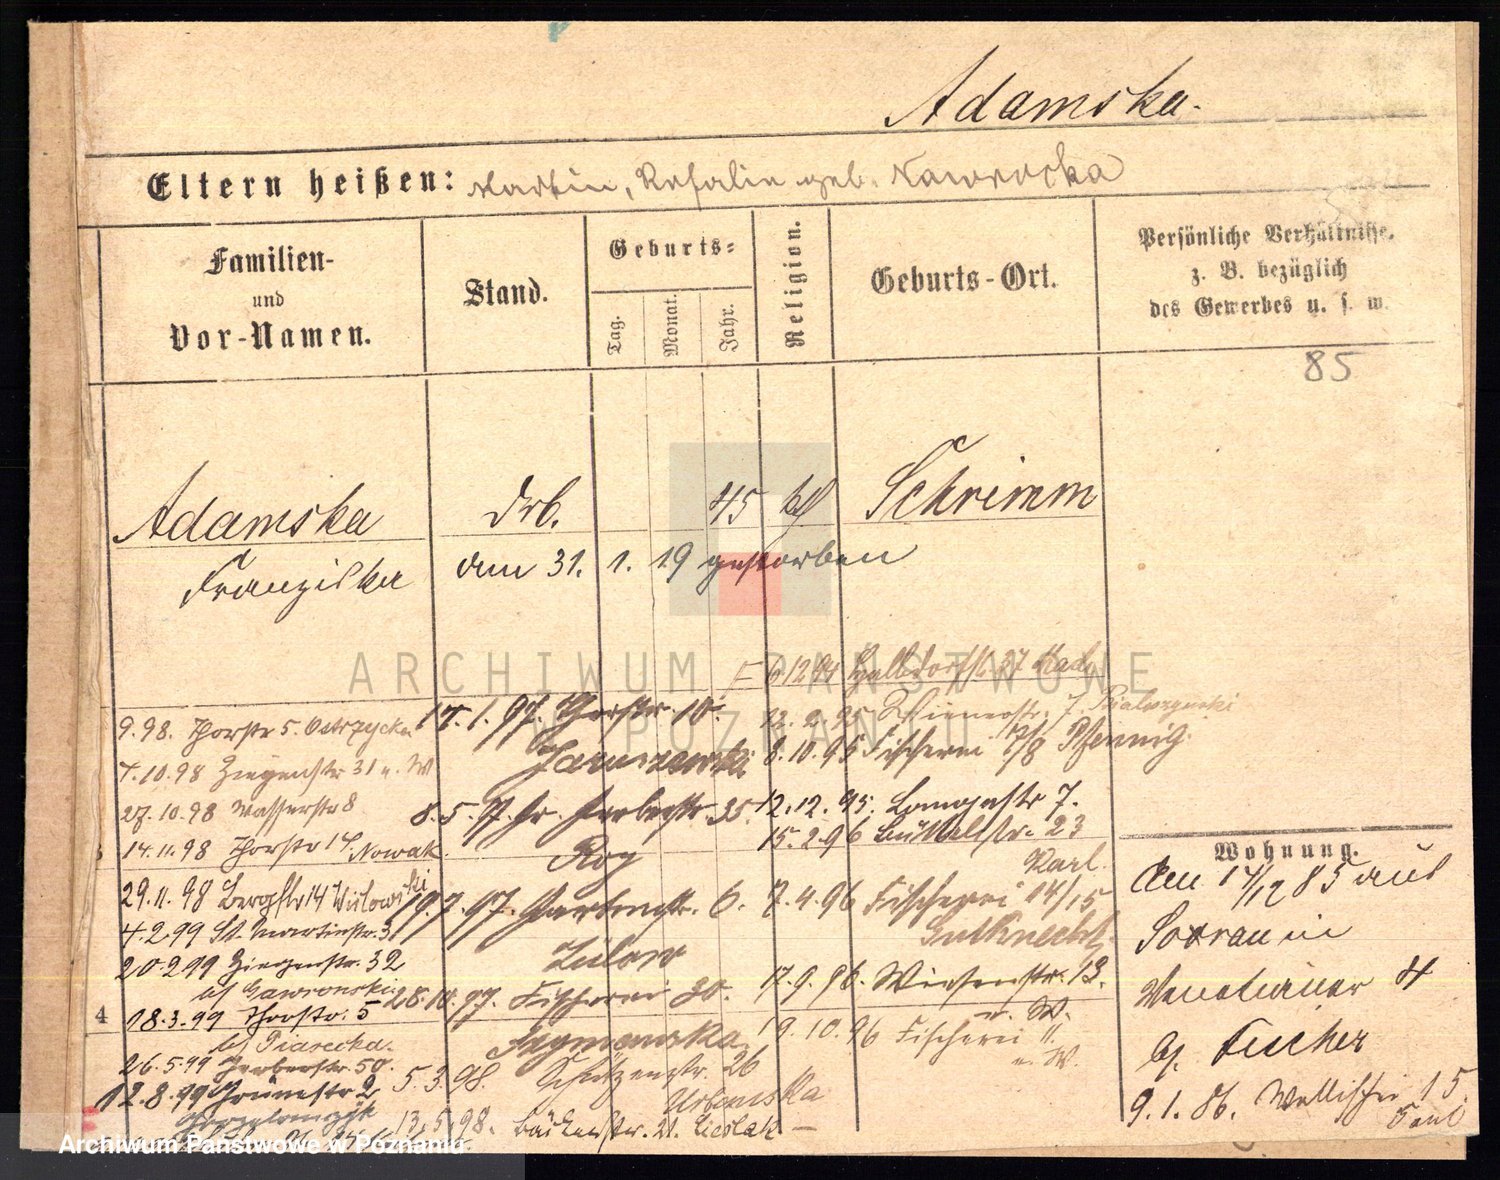 Adamska.
Eltern heißen: Martin, Rosalie geb. Nawrocka
Familien- und Vor-Namen.
Stand.
Geburts-
Tag. Monat. Jahr.
Religion.
Geburts-Ort.
Persönliche Verhältnisse,
z. B. bezüglich
des Gewerbes u. s. w.
85
Adamska Arb. 45 kth Schrimm
Franziska am 31. 1. 19 gestorben
6.12.94 Halbdorfstr. 27
9.98. Thorstr 5. Ostrzycka
17.1.97. Thorstr. 10.
12.2.95 Wienerstr. 7.
7.10.98 Ziegenstr 31 u. W
Januszewski
8.10.95 Fischerei 7/8 Pfennig.
27.10.98 Wasserstr 8
8.5.97. Gr. Gerberstr. 35.
12.12.95. Langestr 7.
15.2.96 Büttelstr. 23
14.11.98 Thorstr 14. Nowak
Roy
Karl
29.11.98 Bergstr 14
19.7.97. Gartenstr. 6.
7.4.96 Fischerei 14/15
Gutknecht
4.2.99 St. Martinstr. 3
Zülow
20.2.99 Ziegenstr. 32
bei Gawronski
28.10.97. Fischerei 30.
17.9.96. Wiesenstr. 13.
18.3.99 Thorstr. 5
bei Piasecka.
Szymanska
19.10.96 Fischerei 11.
u. W.
26.5.99 Gerberstr. 50.
5.3.98. Schützenstr. 26
Urbanska
12.8.99 Grünestr 2
13.5.98. Bäckerstr. 21. Cieslak
Wohnung.
Am 14/12 85 aus
in
Venetianer 4
bj. Fischer
9.1.86. Wallischei 15
4
ARCHIWUM PAŃSTWOWE
W POZNANIU
Archiwum Państwowe w Poznaniu